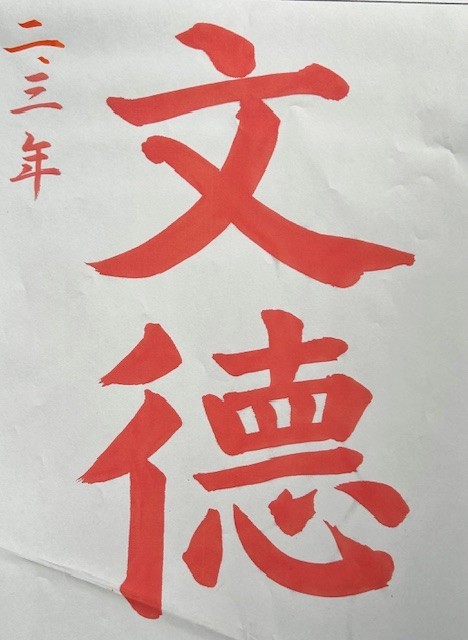 文德
二、三年